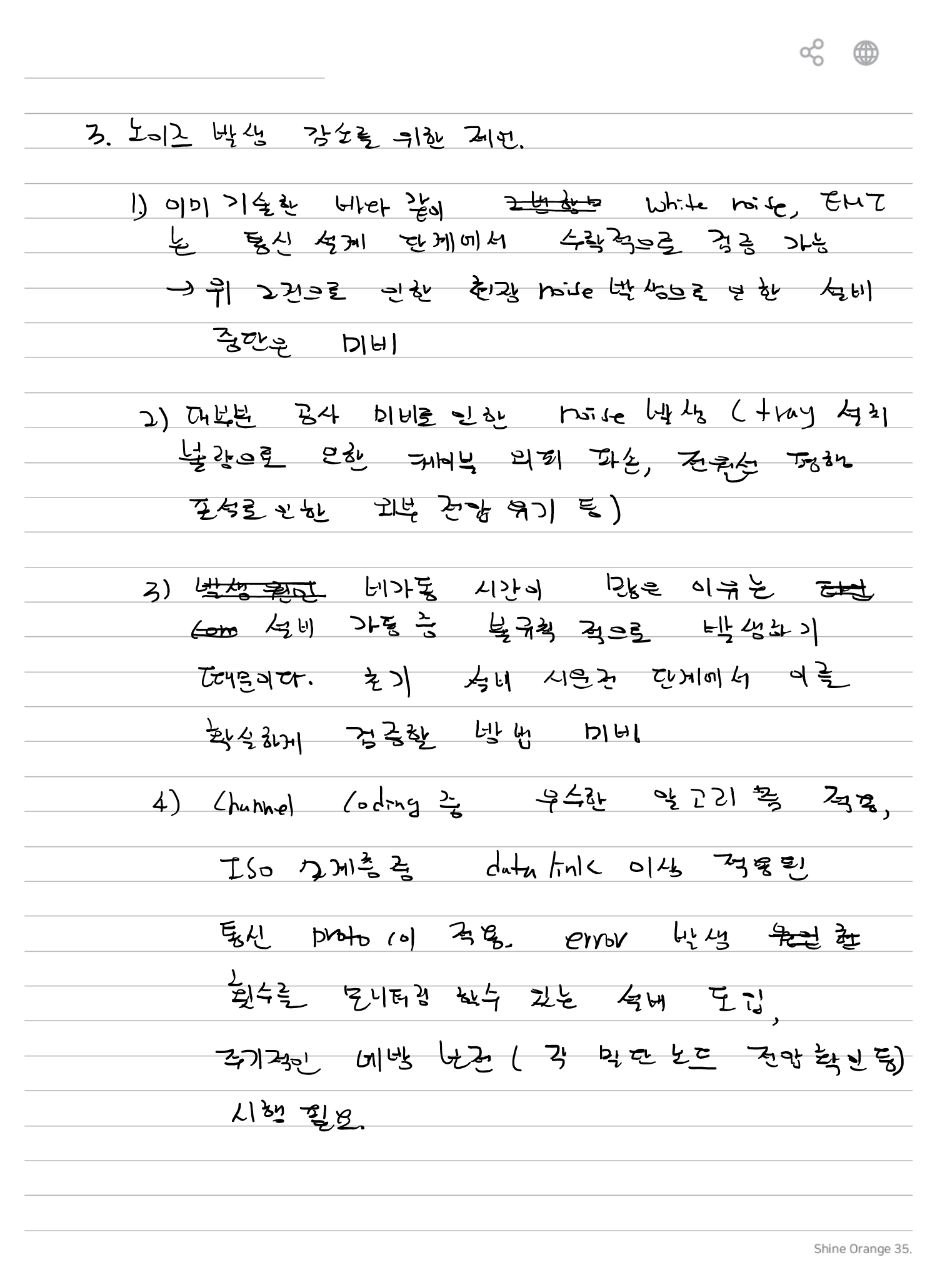 3. 노이즈 발생 감소를 위한 제언.
1) 이미 기술한 바와 같이 white noise, EMI
는 통신 설계 단계에서 수학적으로 검증 가능
→ 위 2건으로 인한 현장 noise 발생으로 인한 설비
중단은 미비
2) 대부분 공사 미비로 인한 noise 발생 (tray 설치
불량으로 인한 케이블 외피 파손, 전원선 평행
포설로 인한 외부 전압 유기 등)
3) 비가동 시간이 많은 이유는
설비 가동 중 불규칙 적으로 발생하기
때문이다. 초기 설비 시운전 단계에서 이를
확실하게 검증할 방법 미비
4) Channel Coding 중 우수한 알고리즘 적용,
ISO 계층중 data link 이상 적용된
통신 proto col 적용. error 발생
횟수를 모니터링 할수 있는 설비 도입,
주기적인 예방 보전 (각 말단 노드 전압 확인 등)
시행 필요.
Shine Orange 35.